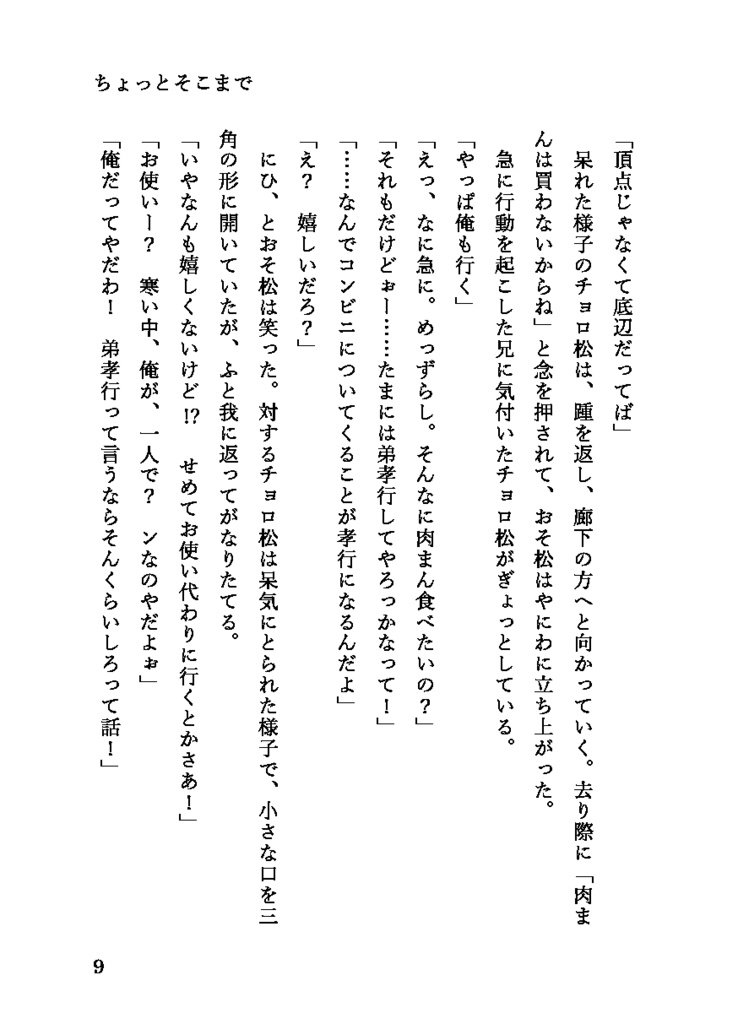 ちょっとそこまで
「頂点じゃなくて底辺だってば」
　呆れた様子のチョロ松は、踵を返し、廊下の方へと向かっていく。去り際に「肉ま
んは買わないからね」と念を押されて、おそ松はやにわに立ち上がった。
　急に行動を起こした兄に気付いたチョロ松がぎょっとしている。
「やっぱ俺も行く」
「えっ、なに急に。めっずらし。そんなに肉まん食べたいの？」
「それもだけどぉー……たまには弟孝行してやろっかなって！」
「……なんでコンビニについてくることが孝行になるんだよ」
「え？　嬉しいだろ？」
　にひ、とおそ松は笑った。対するチョロ松は呆気にとられた様子で、小さな口を三
角の形に開いていたが、ふと我に返ってがなりたてる。
「いやなんも嬉しくないけど⁉　せめてお使い代わりに行くとかさあ！」
「お使いー？　寒い中、俺が、一人で？　ンなのやだよぉ」
「俺だってやだわ！　弟孝行って言うならそんくらいしろって話！」
9